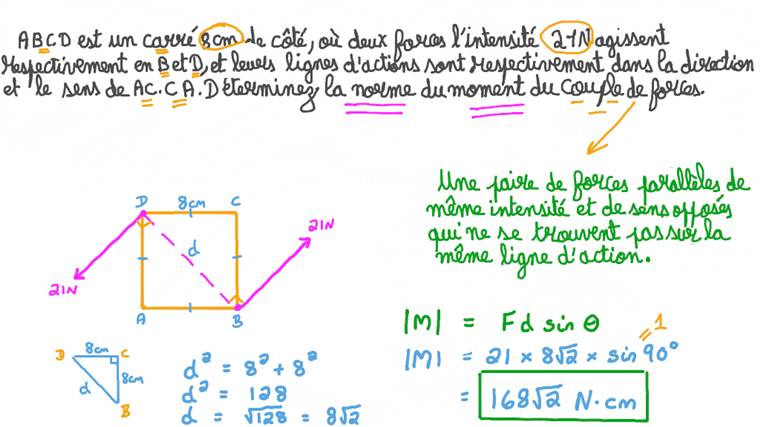 ABCD est un carré 8cm de côté, où deux forces l'intensité 21N agissent
respectivement en B et D, et leurs lignes d'actions sont respectivement dans la direction
et le sens de AC. CA. Déterminez la norme du moment du couple de forces.
Une paire de forces parallèles de
même intensité et de sens opposés
qui ne se trouvent pas sur la
même ligne d'action.
D 8cm C
d
21N
21N
A B
|M| = Fd sin θ
1
|M| = 21 × 8√2 × sin 90°
= 168√2 N·cm
D 8cm C
d 8cm
B
d² = 8² + 8²
d² = 128
d = √128 = 8√2